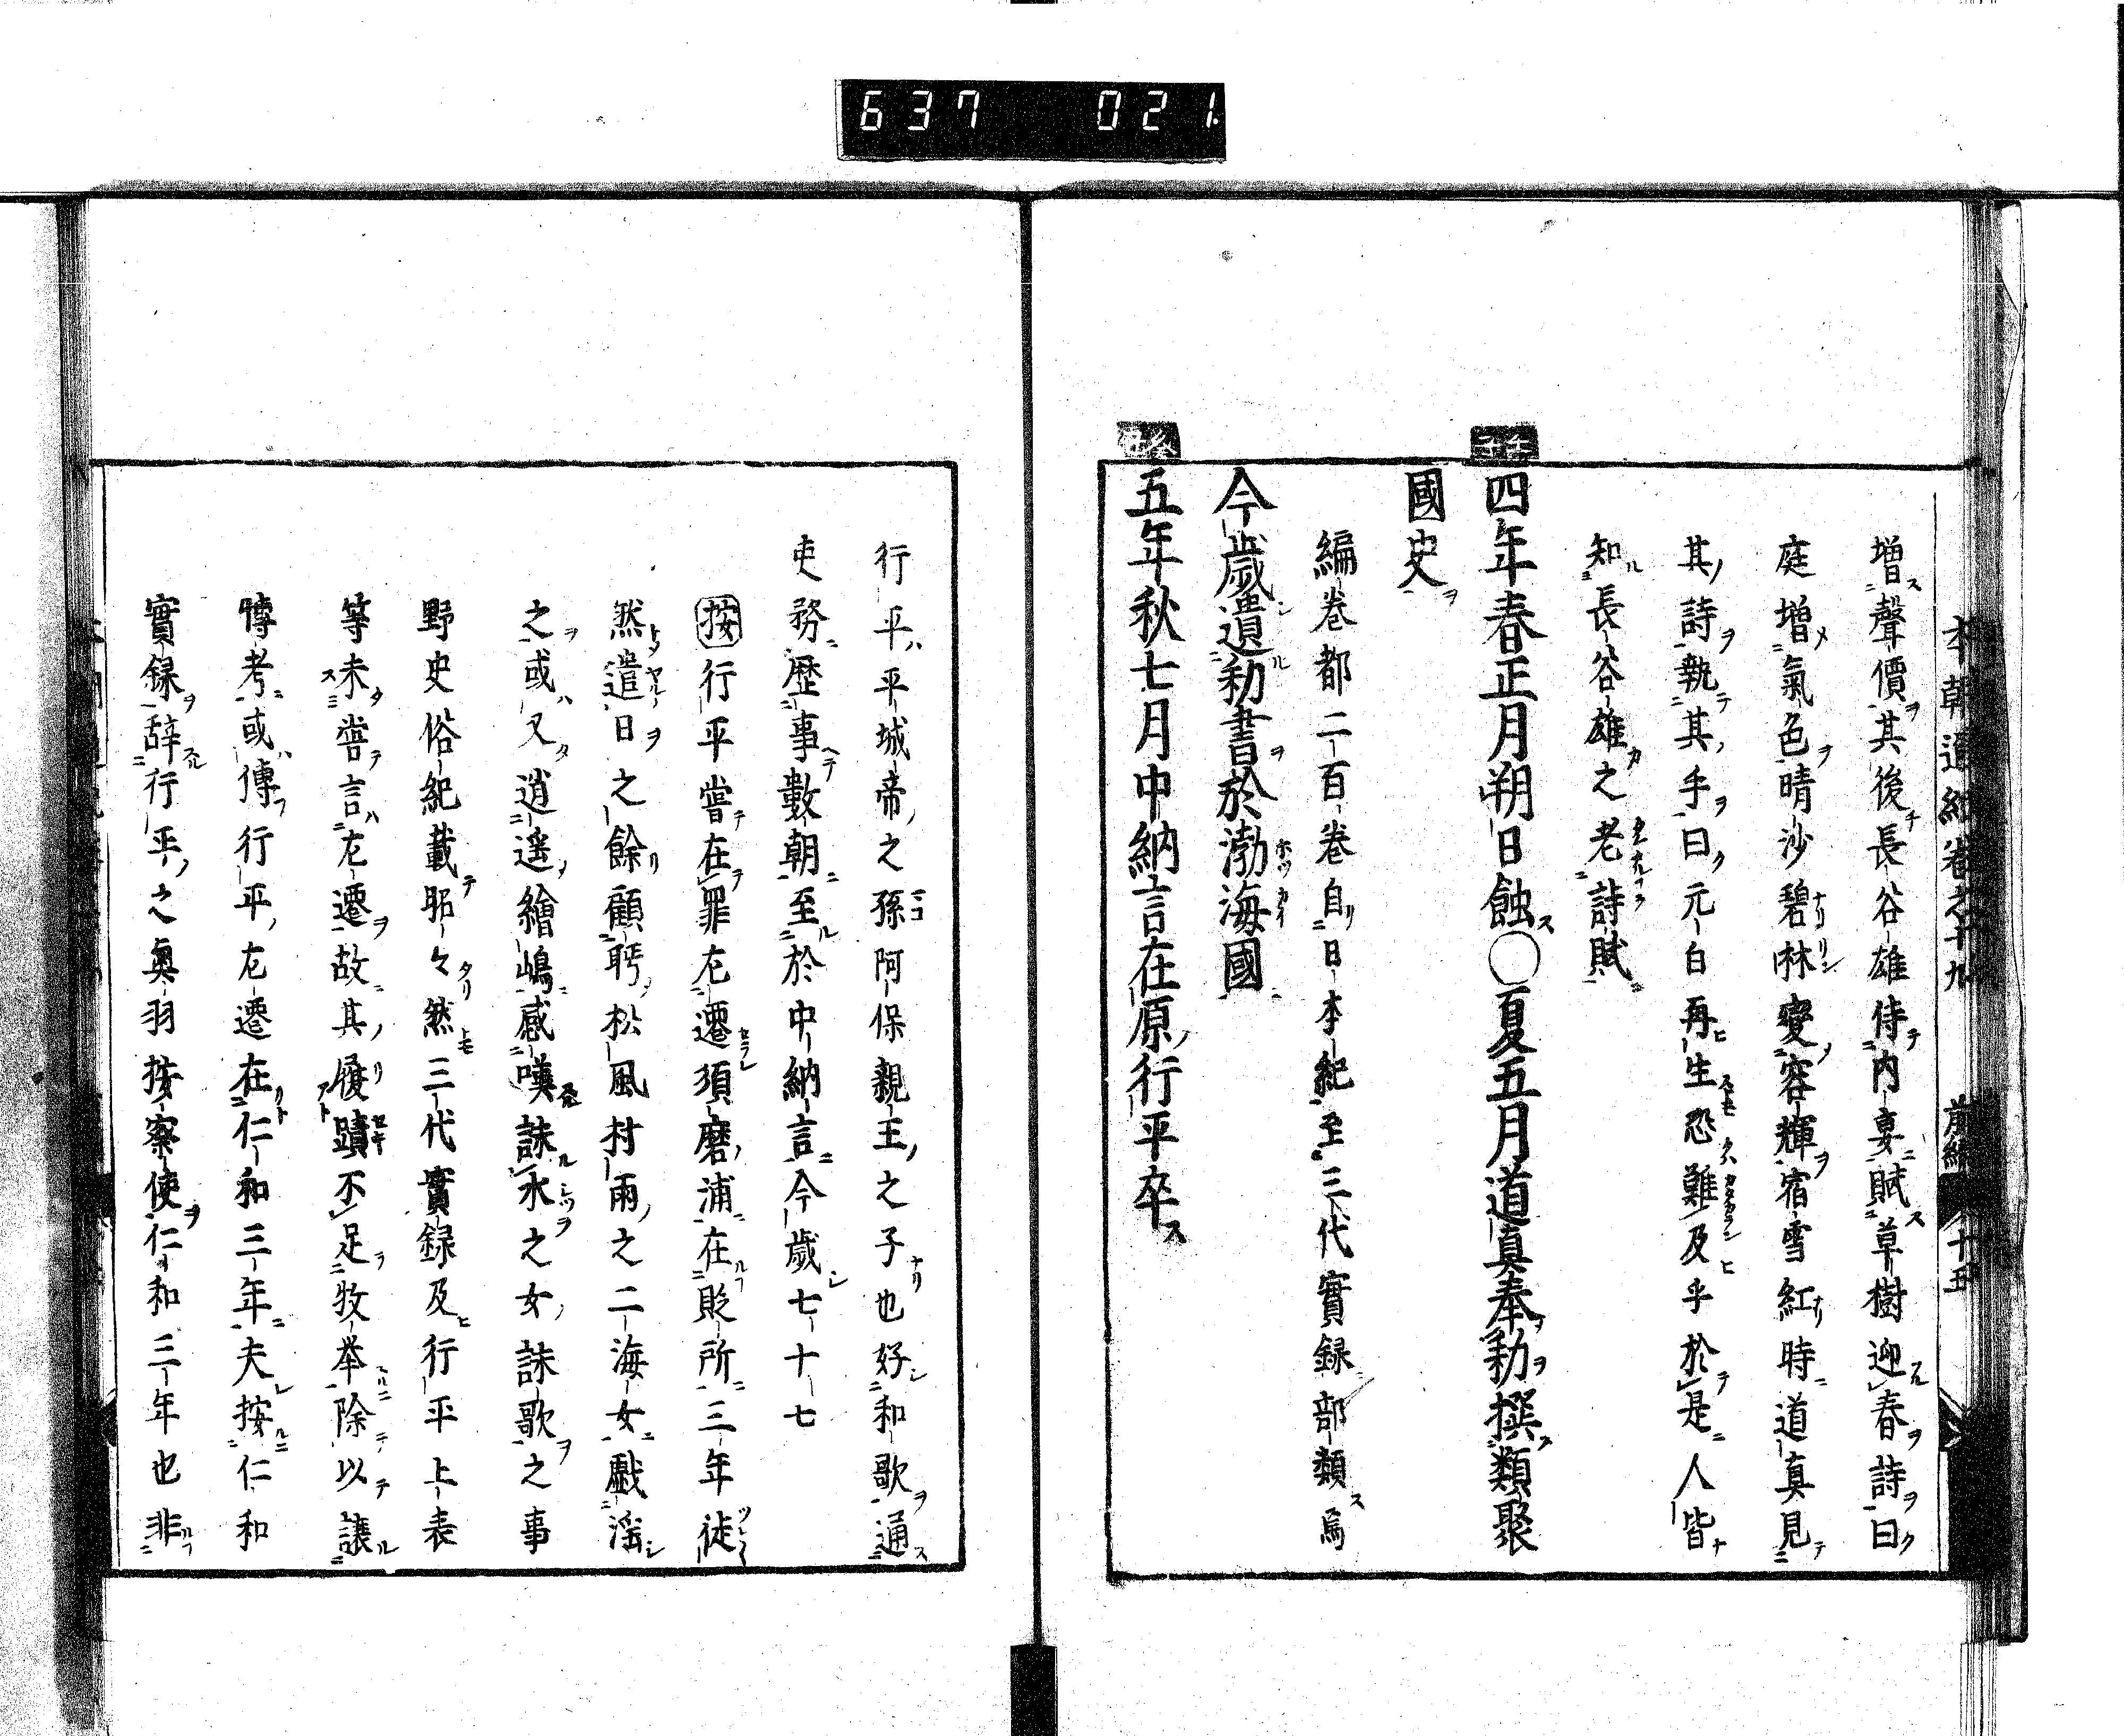 637 021
本朝通紀卷之十九 前編 十五
增聲價其後長谷雄侍内宴賦草樹迎春詩曰
庭增氣色晴沙碧林變容輝宿雪紅時道真見
其詩執其手曰元白再生恐難及乎於是人皆
知長谷雄之老詩賦
四年春正月朔日蝕○夏五月道真奉勅撰類聚
國史
編卷都二百卷自日本紀至三代實録部類焉
今歲遺勅書於渤海國
五年秋七月中納言在原行平卒
行平平城帝之孫阿保親王之子也好和歌通
吏務歷事數朝至於中納言今歲七十七
按行平嘗在罪左遷須磨浦在貶所三年徒
然遣日之餘顧眄松風村雨之二海女戯滛
之或又逍遥繪嶋感嘆誅水之女誅歌之事
野史俗紀載昭々然三代實録及行平上表
等未嘗言左遷故其履蹟不足牧举除以讓
愽考或傳行平左遷在仁和三年夫按仁和
實録辞行平之奥羽按察使仁和三年也非